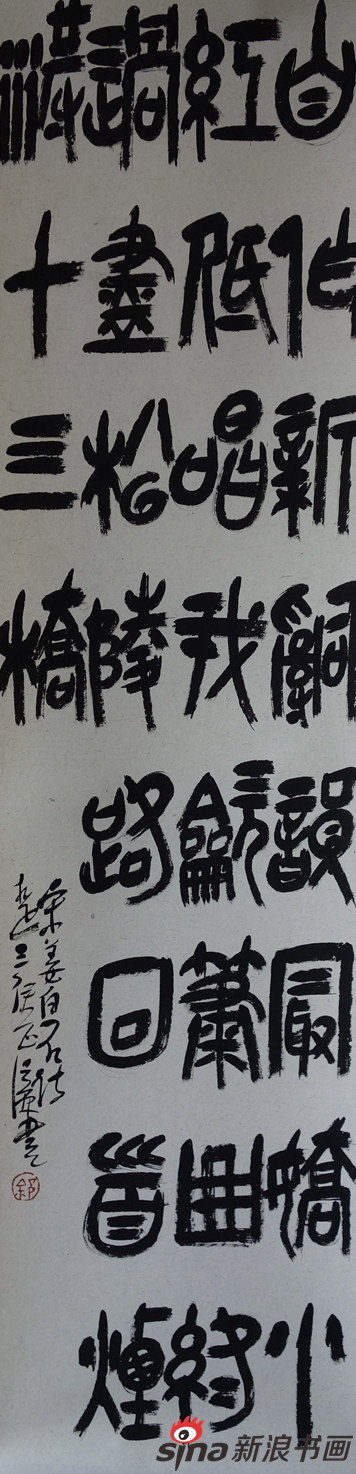 自作新詞韻最嬌小
紅低唱我龡簫曲終
過盡松陵路回首煙
十三橋
宋姜白石詩
sina新浪书画